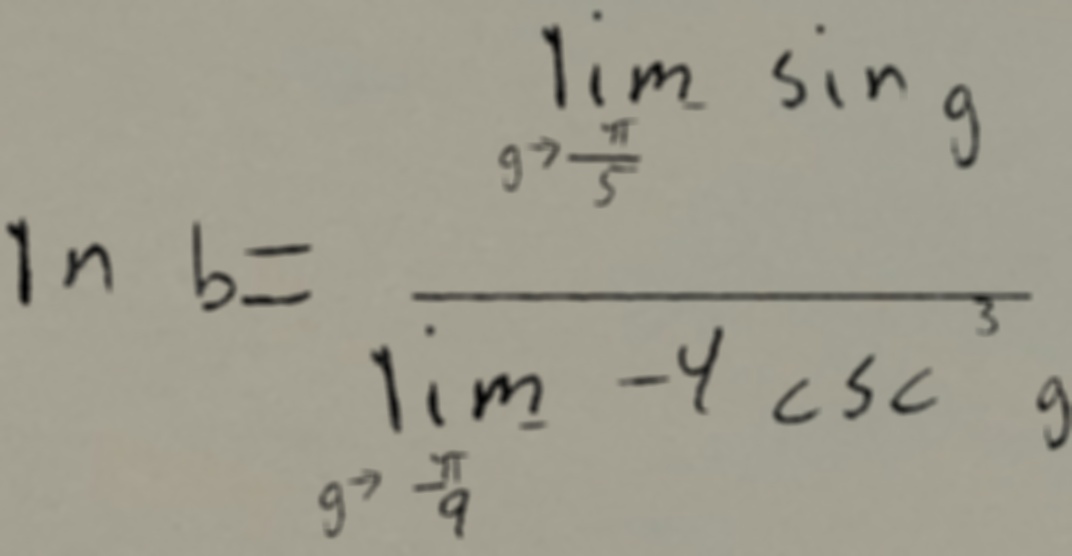 ln b = \frac{\lim_{g \to \frac{\pi}{5}} \sin g}{\lim_{g \to \frac{\pi}{9}} -4 \csc^3 g}